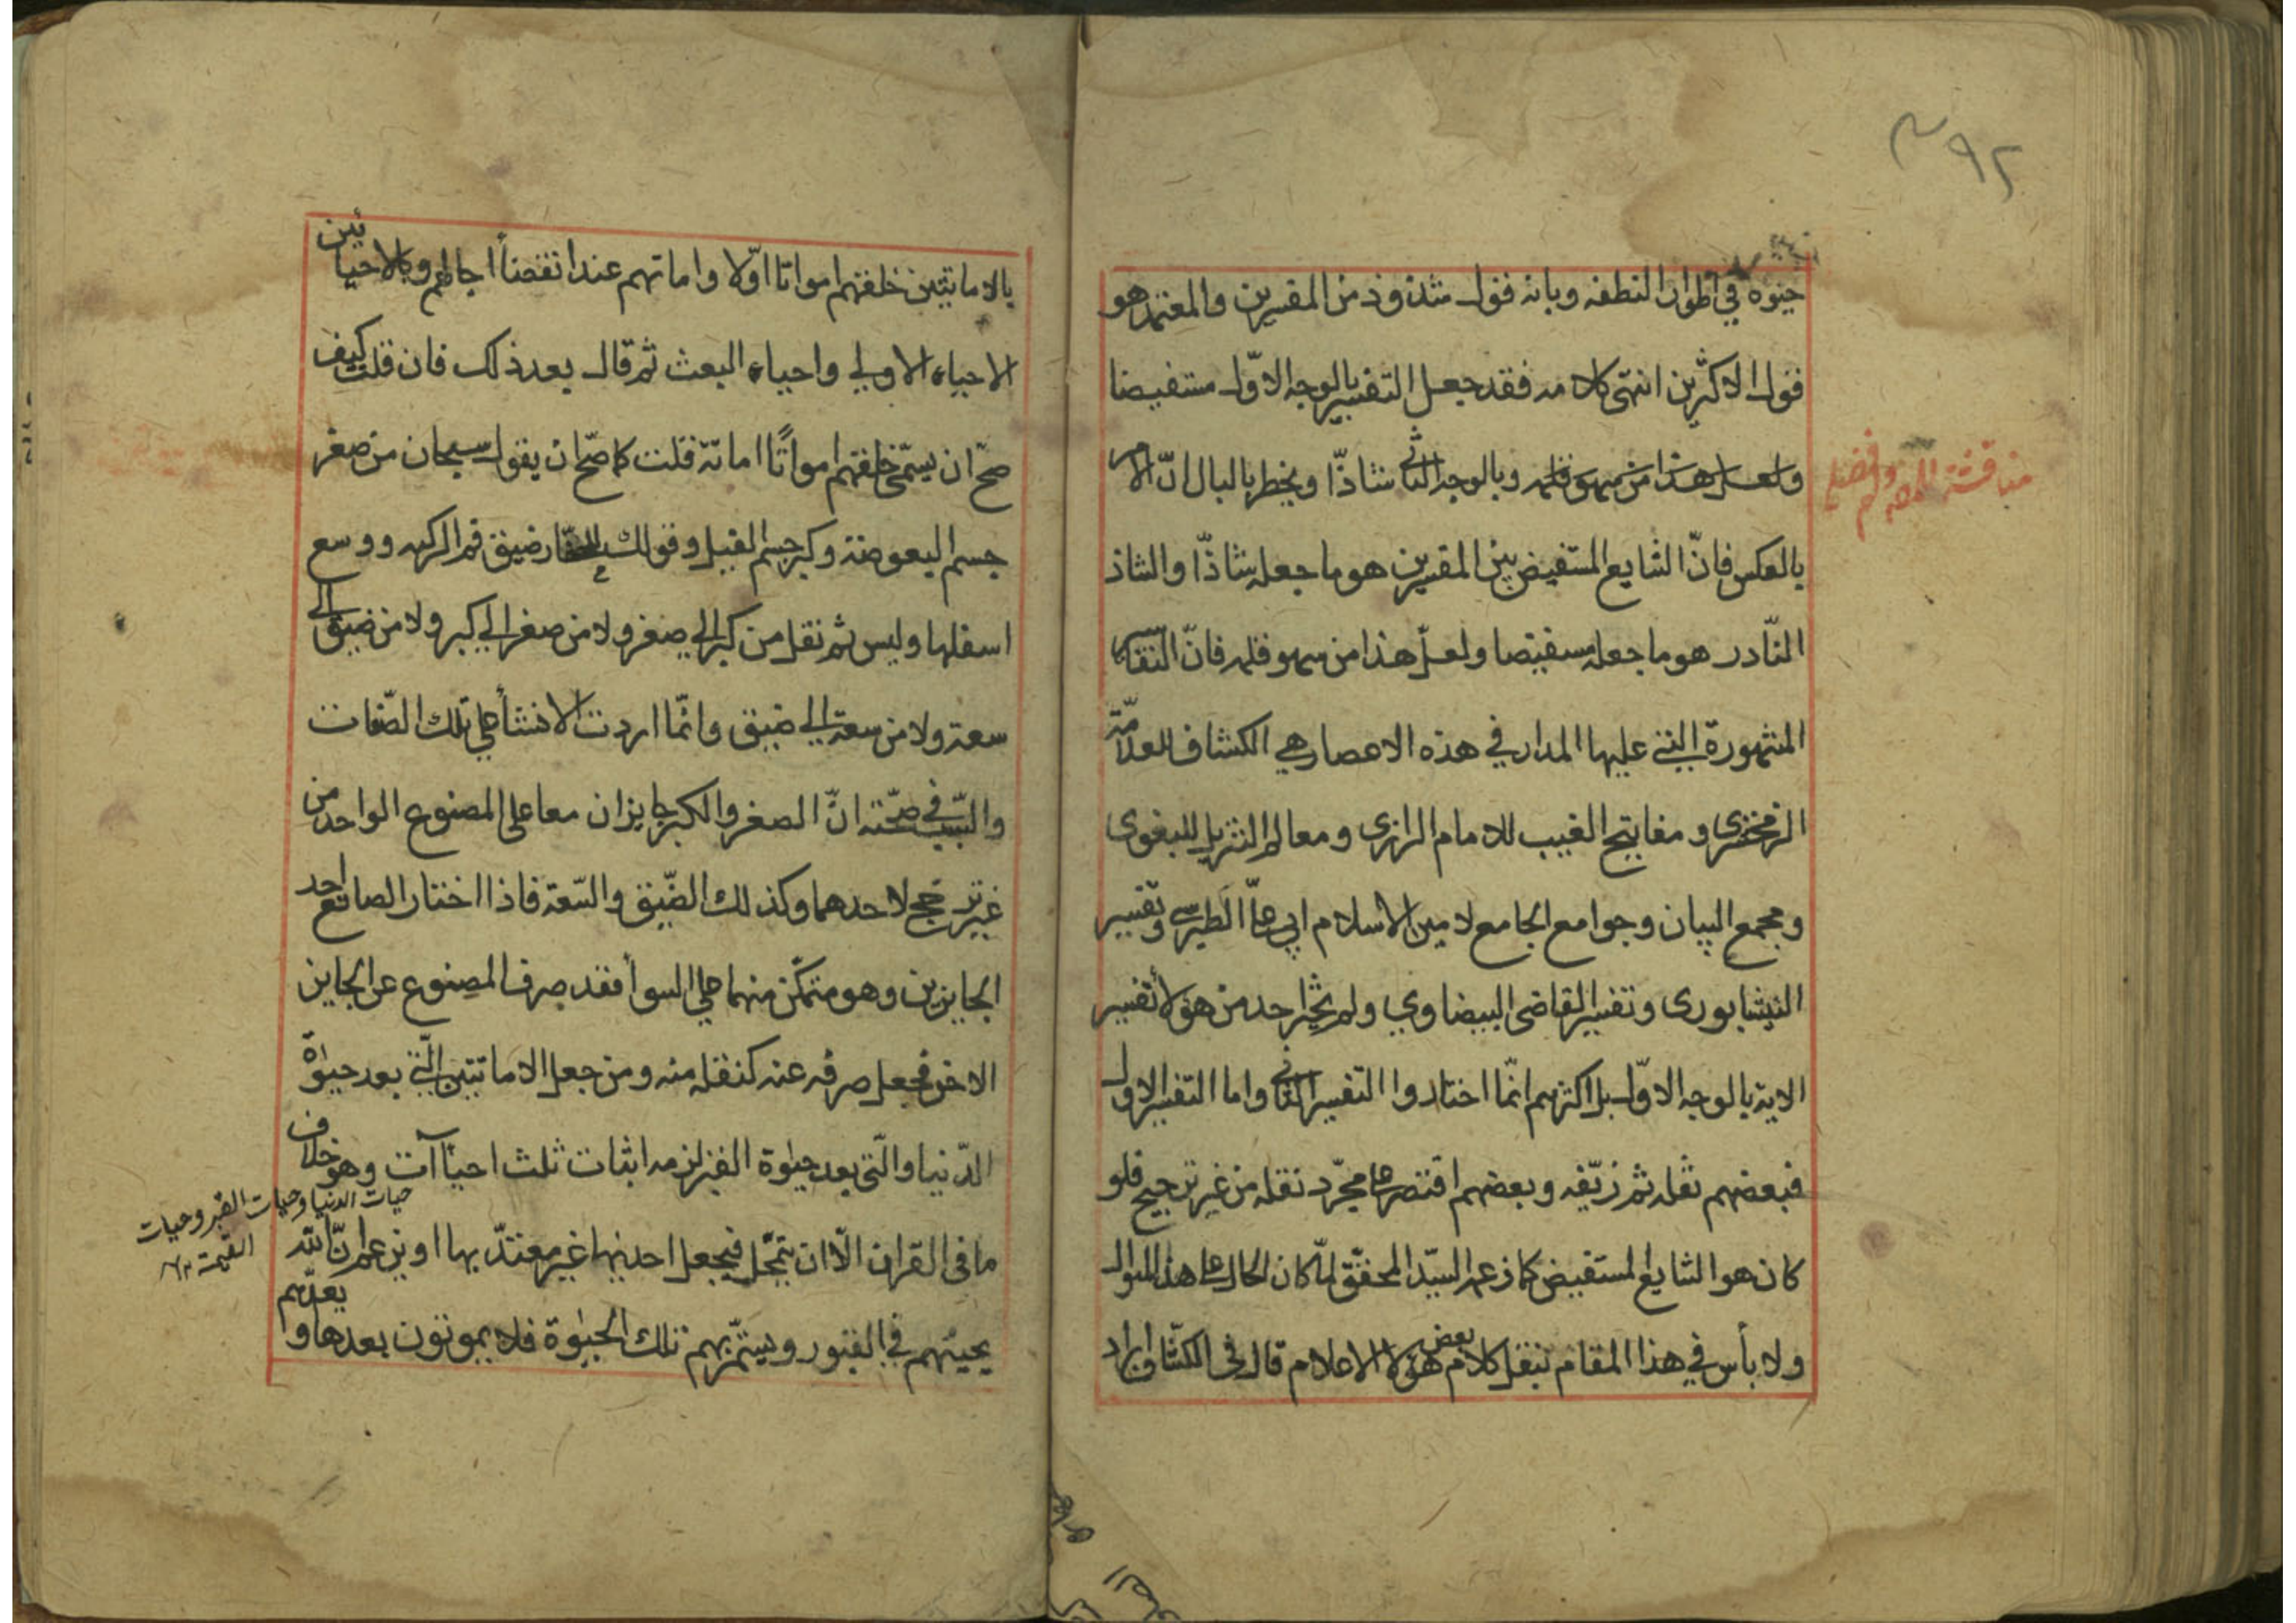 ٣٩٢
حيوة في اطوار النطفه وبانه قول شذوذ من المفسرين والمعتمد هو
قول الاكثرين انتهى كلامه فقد جعل التفسير بالوجه الاوّل مستفيضا
ولعل هذا من سهو قلمه وبالوجه الثاني شاذّا ويخطر بالبال انّ الامر
بالعكس فانّ الشايع المستفيض بين المفسرين هو ما جعله شاذّا والشاذ
النّادر هو ما جعله مستفيضا ولعلّ هذا من سهو قلمه فانّ التّفاسير
المشهورة التي عليها المدار في هذه الاعصار هي الكشاف للعلامّة
الزمخشري و مفاتيح الغيب للامام الرازي ومعالم التنزيل للبغوي
ومجمع البيان وجوامع الجامع لامين الاسلام ابي علي الطبرسي وتفسير
النيشابوري وتفسير القاضي البيضاوي ولم يختر احد من هؤلأ تفسير
الاية بالوجه الاوّل بل اكثرهم انّما اختاروا التفسير الثاني واما التفسير الاول
فبعضهم نقله ثم زيّفه وبعضهم اقتصر على مجرّد نقله من غير ترجيح فلو
كان هو الشايع المستفيض كما زعمه السيّد المحقّق لما كان الحال على هذا المنوال
ولا بأس في هذا المقام بنقل كلام بعض هؤلا الاعلام قال في الكشّاف اراد
مناقشة المص
بالاماتتين خلقهم امواتا اوّلا واماتهم عند انقضأ اجالهم وبالاحيائين
الاحياء الاولي واحياء البعث ثم قال بعد ذلك فان قلت كيف
صحّ ان يسمّى خلقهم امواتًا اماتة قلت كما صحّ ان يقول سبحان من صغر
جسم البعوضة وكبر جسم الفيل وقولك للحفّار ضيق فم الركيه ووسع
اسفلها وليس ثم نقل من كبر الي صغر ولا من صغر الي كبر ولا من ضيق الي
سعة ولا من سعة الي ضيق وانّما اردت الانشأ علي تلك الصّفات
والسّبب في صحّته انّ الصغر والكبر جايزان معا على المصنوع الواحد من
غير ترجّح لاحدهما وكذلك الضّيق والسّعة فاذا اختار الصانع احد
الجايزين وهو متمكّن منهما علي السوأ فقد صرف المصنوع عن الجايز
الاخر فجعل صرفه عنه كنقله منه ومن جعل الاماتتين الّتي بعد حيوٰة
الدّنيا والّتي بعد حيٰوة القبر لزمه اثبات ثلث احياآت وهو خلاف
حيات الدنيا وحيات القبر وحيات
القيمة ١٢
ما في القران الّا ان يتمحّل فيجعل احديها غير معتدّ بها او يزعم انّ اللّه
يحييهم في القبور ويستمّر بهم تلك الحيٰوة فلا يموتون بعدها و يعدّهم